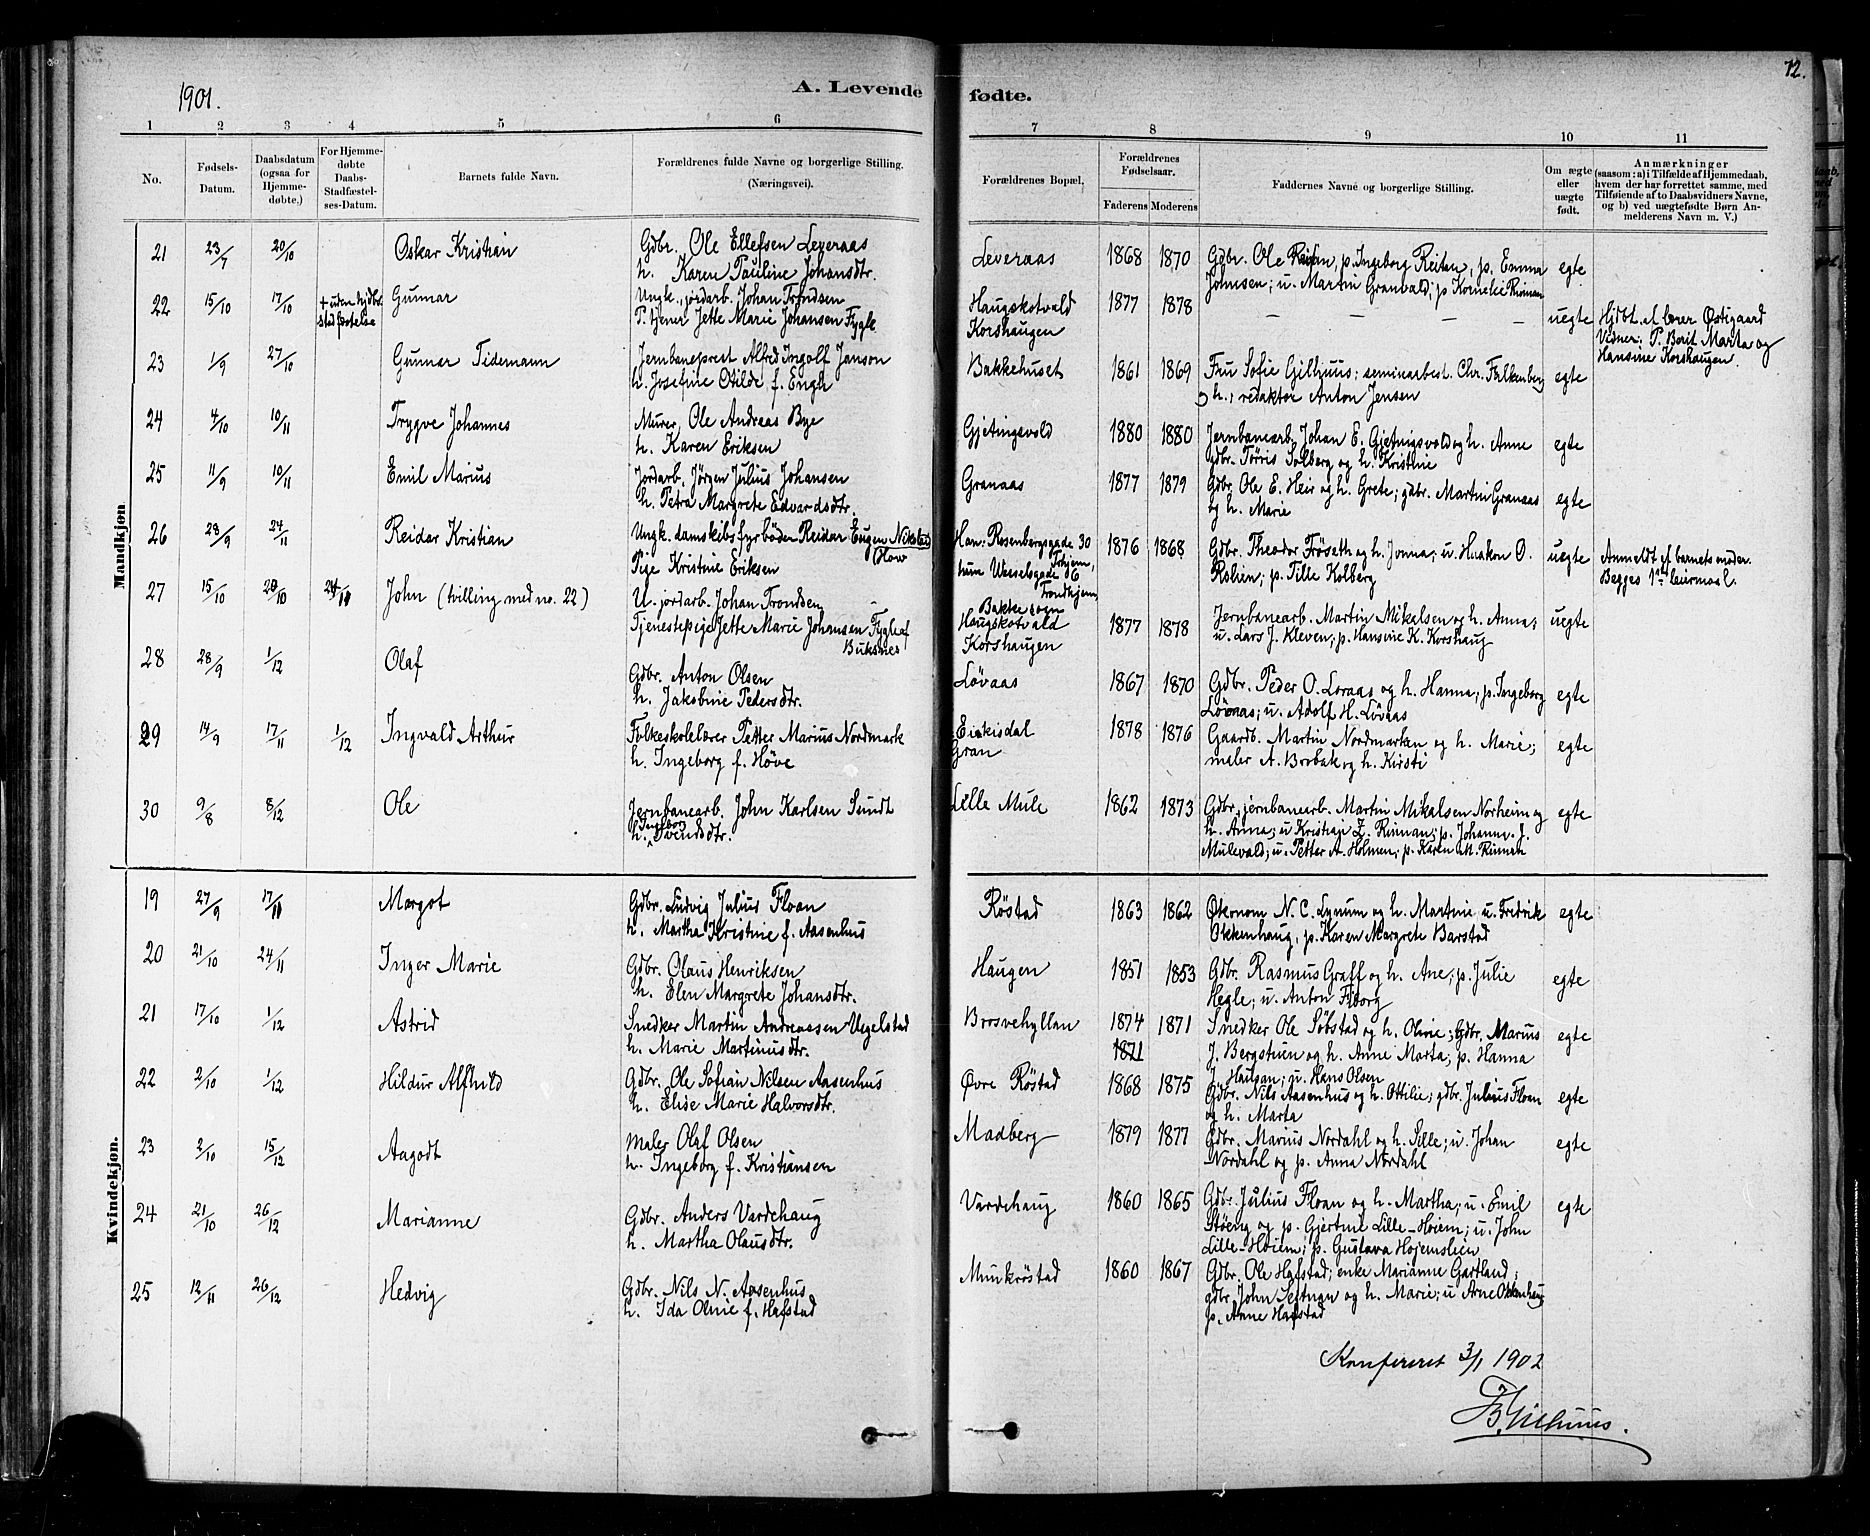 1901.
A. Levende fødte.
12.
1 2 3 4 5 6 7 8 9 10 11
No.
Fødsels-Datum.
Daabsdatum (ogsaa for Hjemmedøbte.)
For Hjemmedøbte Daabs-Stadfæstelses-Datum.
Barnets fulde Navn.
Forældrenes fulde Navne og borgerlige Stilling. (Næringsvei).
Forældrenes Bopæl.
Forældrenes Fødselsaar.
Faderens Moderens
Faddernes Navne og borgerlige Stilling.
Om ægte eller uægte født.
Anmærkninger
(saasom: a) i Tilfælde af Hjemmedaab,
hvem der har forrettet samme, med
Tilføiende af to Daabsvidners Navne,
og b) ved uægtefødte Børn An-
melderens Navn m. V.)
Mandkjøn
21 23/7 20/10 Oskar Kristian Gdbr. Ole Ellefsen Leveraas Leveraas 1868 1870 Gdbr. Ole Reitan, p. Ingeborg Reitan, p. Emma egte
h. Karen Pauline Johansdtr. Johnsen; u. Martin Granvald; p. Kornelie Rinnan
22 15/10 17/10 + uden kjdbs. Gunnar Ungk., jordarb. Johan Trondsen Haugskotvald 1877 1878 — — — — uegte Hjdbt. af lærer Østigaard
P. tjener Jette Marie Johansen Fygle Korshaugen Vidner: P. Berit Marta og
Hansine Korshaugen.
23 1/9 27/10 Gunnar Tidemann Jernbaneprest Alfred Ingolf Janson Bakkehuset 1861 1869 Fru Sofie Gilhuus; seminarbest. Chr. Falkenberg egte
h. Josefine Otilde f. Engh h., redaktør Anton Jensen
24 4/10 10/11 Trygve Johannes Murer Ole Andreas Bye Gjetingsvold 1880 1880 Jernbanearb. Johan E. Gjetingsvold og h. Anne egte
h. Karen Eriksen gdbr. Tørris Solberg og h. Kristine
25 11/9 10/11 Emil Marius Jordarb. Jörgen Julius Johansen Granaas 1877 1879 Gdbr. Ole E. Heir og h. Grete; gdbr. Martin Granaas egte
h. Petra Margrete Edvardsdtr. og h. Marie
26 28/9 24/11 Reidar Kristian Ungk. damskibsfyrbøder Reidar Eugen Nikolai How Han: Rosenbergsgade 30 Trhjem, 1876 1868 Gdbr. Theodor Frøseth og h. Jonna; u. Haakon O. uegte Anmeldt af barnets moder.
Pige Kristine Eriksen hun Wesselsgade 16 Trondhjem, Bakke sogn p. Tille Kolberg Begges 1ste leiermaal.
27 15/10 20/10 24/11 John (tvilling med no. 22) U. jordarb. Johan Trondsen Haugskotvald 1877 1878 Jernbanearb. Martin Mikalsen og h. Anna; uegte
Tjenestepige Jette Marie Johansen Fygle af Buksnes Korshaugen u. Lars J. Kleven; p. Hansine K. Korshaug
28 28/9 1/12 Olaf Gdbr. Anton Olsen Løvaas 1867 1870 Gdbr. Peder O. Loraas og h. Hanna; p. Ingeborg egte
h. Jakobine Pedersdtr. Løvaas; u. Adolf H. Løvaas
29 14/9 17/11 1/12 Ingvald Arthur Folkeskolelærer Petter Marius Nordmark Eirikisdal 1878 1876 Gaardb. Martin Nordmarken og h. Marie; egte
h. Ingeborg f. Höve Gran maler A. Brobak og h. Kirsti
30 9/8 8/12 Ole Jernbanearb. John Karlsen Sundt Lille Mule 1862 1873 Gdbr., jernbanearb. Martin Mikalsen Norheim og egte
h. Ingeborg Svendsdtr. h. Anna; u Kristian Z. Rinnan; p. Johanna J.
Mulevald; u. Petter A. Holmen; p. Karen M. Rinnan
Kvindekjøn.
19 27/9 17/11 Margot Gdbr. Ludvig Julius Floan Röstad 1863 1862 Økonom N. C. Lynum og h. Martine u. Fredrik egte
h. Martha Kristine f. Aasenhus Okkenhaug, p. Karen Margrete Barstad
20 21/10 24/11 Inger Marie Gdbr. Olaus Henriksen Haugen 1851 1853 Gdbr. Rasmus Graff og h. Ane; p. Julie egte
h. Elen Margrete Johansdtr. Hegle; u. Anton Fiborg
21 17/10 1/12 Astrid Snedker Martin Andreassen Ugelstad Brosvehyllan 1874 1871 Snedker Ole Søbstad og h. Olivie; Gdbr. Marius egte
h. Marie Martinusdtr. 1871 J. Bergstuen og h. Anne Marta; p. Hanna
J. Haugan; u. Hans Olsen
22 2/10 1/12 Hildur Alfhild Gdbr. Ole Sofian Nilsen Aasenhus Øvre Röstad 1868 1875 Gdbr. Nils Aasenhus og h. Ottilie; gdbr. Julius Floan egte
h. Elise Marie Halvorsdtr. og h. Marta
23 2/10 15/12 Aagodt Maler Olaf Olsen Madberg 1879 1877 Gdbr. Marius Nordahl og h. Sille; u. Johan egte
h. Ingeborg f. Kristiansen Nordahl og p. Anna Nordahl
24 21/10 26/12 Marianne Gdbr. Anders Vardehaug Vardehaug 1860 1865 Gdbr. Julius Floan og h. Martha; u. Emil egte
h. Martha Olausdtr. Støeng og p. Gjertine Lille-Hoiem; u. John
Lille-Hoiem; p. Gustava Hojemslien
25 12/11 26/12 Hedvig Gdbr. Nils N. Aasenhus Munkröstad 1860 1867 Gdbr. Ole Hafstad; enke Marianne Gartland;
h. Ida Oline f. Hafstad gdbr. John Settnan og h. Marie; u Arne Okkenhaug
p. Anne Hafstad
Konfereret 3/1 1902
B. Gilhuus.